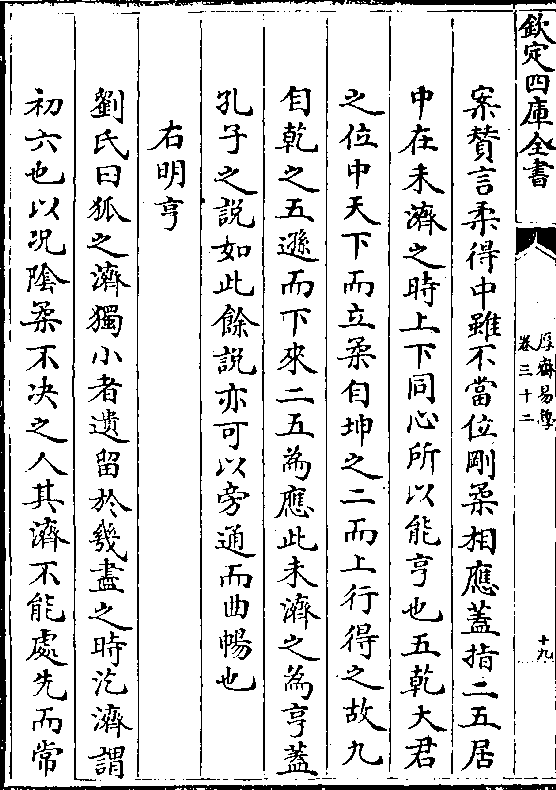 欽定四庫全書
厚齋易學
卷三十二
十九
案賛言柔得中雖不當位剛柔相應蓋指二五居
中在未濟之時上下同心所以能亨也五乾大君
之位中天下而立柔自坤之二而上行得之故九
自乾之五遜而下來二五為應此未濟之為亨蓋
孔子之說如此餘說亦可以旁通而曲暢也
右明亨
劉氏曰狐之濟獨小者遺留於幾盡之時汔濟謂
初六也以况陰柔不决之人其濟不能處先而常